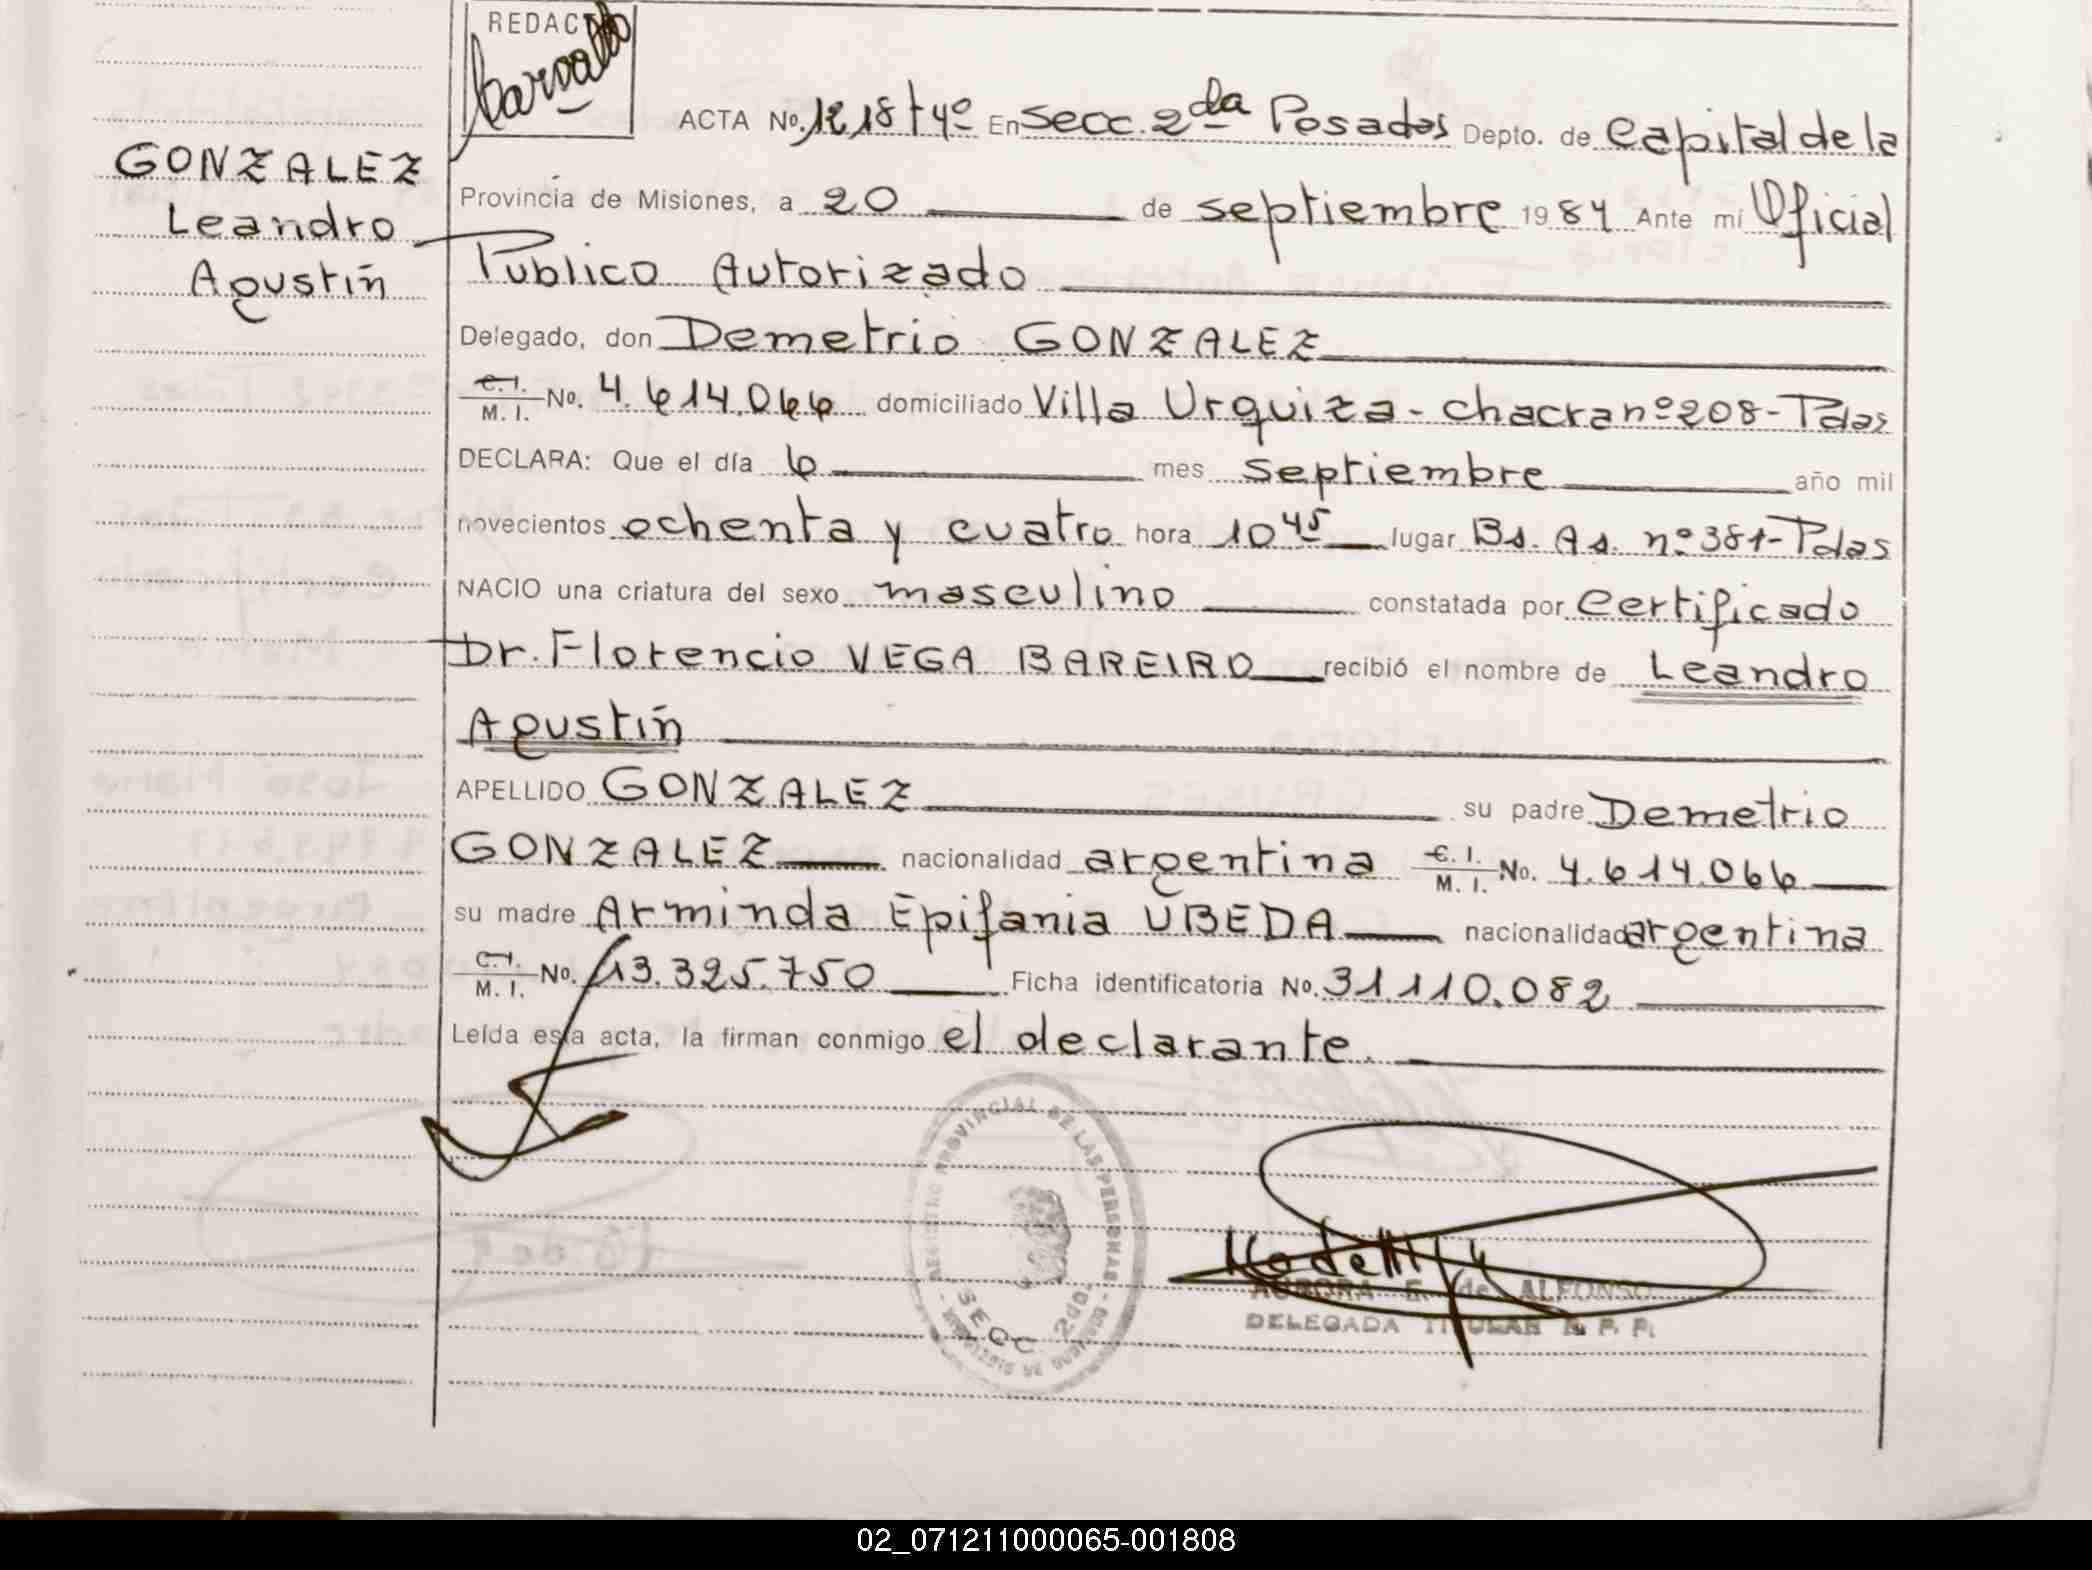 REDAC
Carvallo
ACTA No. 1218 tº 4º En Secc. 2da Posadas Depto. de Capital de la
GONZALEZ
Leandro
Agustín
Provincia de Misiones, a 20 de septiembre 1984 Ante mí Oficial
Publico Autorizado
Delegado, don Demetrio GONZALEZ
C.I.
M.I. No. 4.614.066 domiciliado Villa Urquiza - chacra nº 208 - Pdas
DECLARA: Que el día 6 mes septiembre año mil
novecientos ochenta y cuatro hora 10 45 lugar Bs. As. nº 381 - Pdas
NACIO una criatura del sexo masculino constatada por Certificado
Dr. Florencio VEGA BAREIRO recibió el nombre de Leandro
Agustín
APELLIDO GONZALEZ su padre Demetrio
GONZALEZ nacionalidad argentina C.I.
M.I. No. 4.614.066
su madre Arminda Epifania UBEDA nacionalidad argentina
C.I.
M.I. No. 13.325.750 Ficha identificatoria No. 31.110.082
Leída esta acta, la firman conmigo el declarante.
REGISTRO PROVINCIAL DE LAS PERSONAS
SECC. 2da.
MINISTERIO DE GOBIERNO
AURORA E. de ALFONSO
DELEGADA TITULAR R. P. P.
02_071211000065-001808